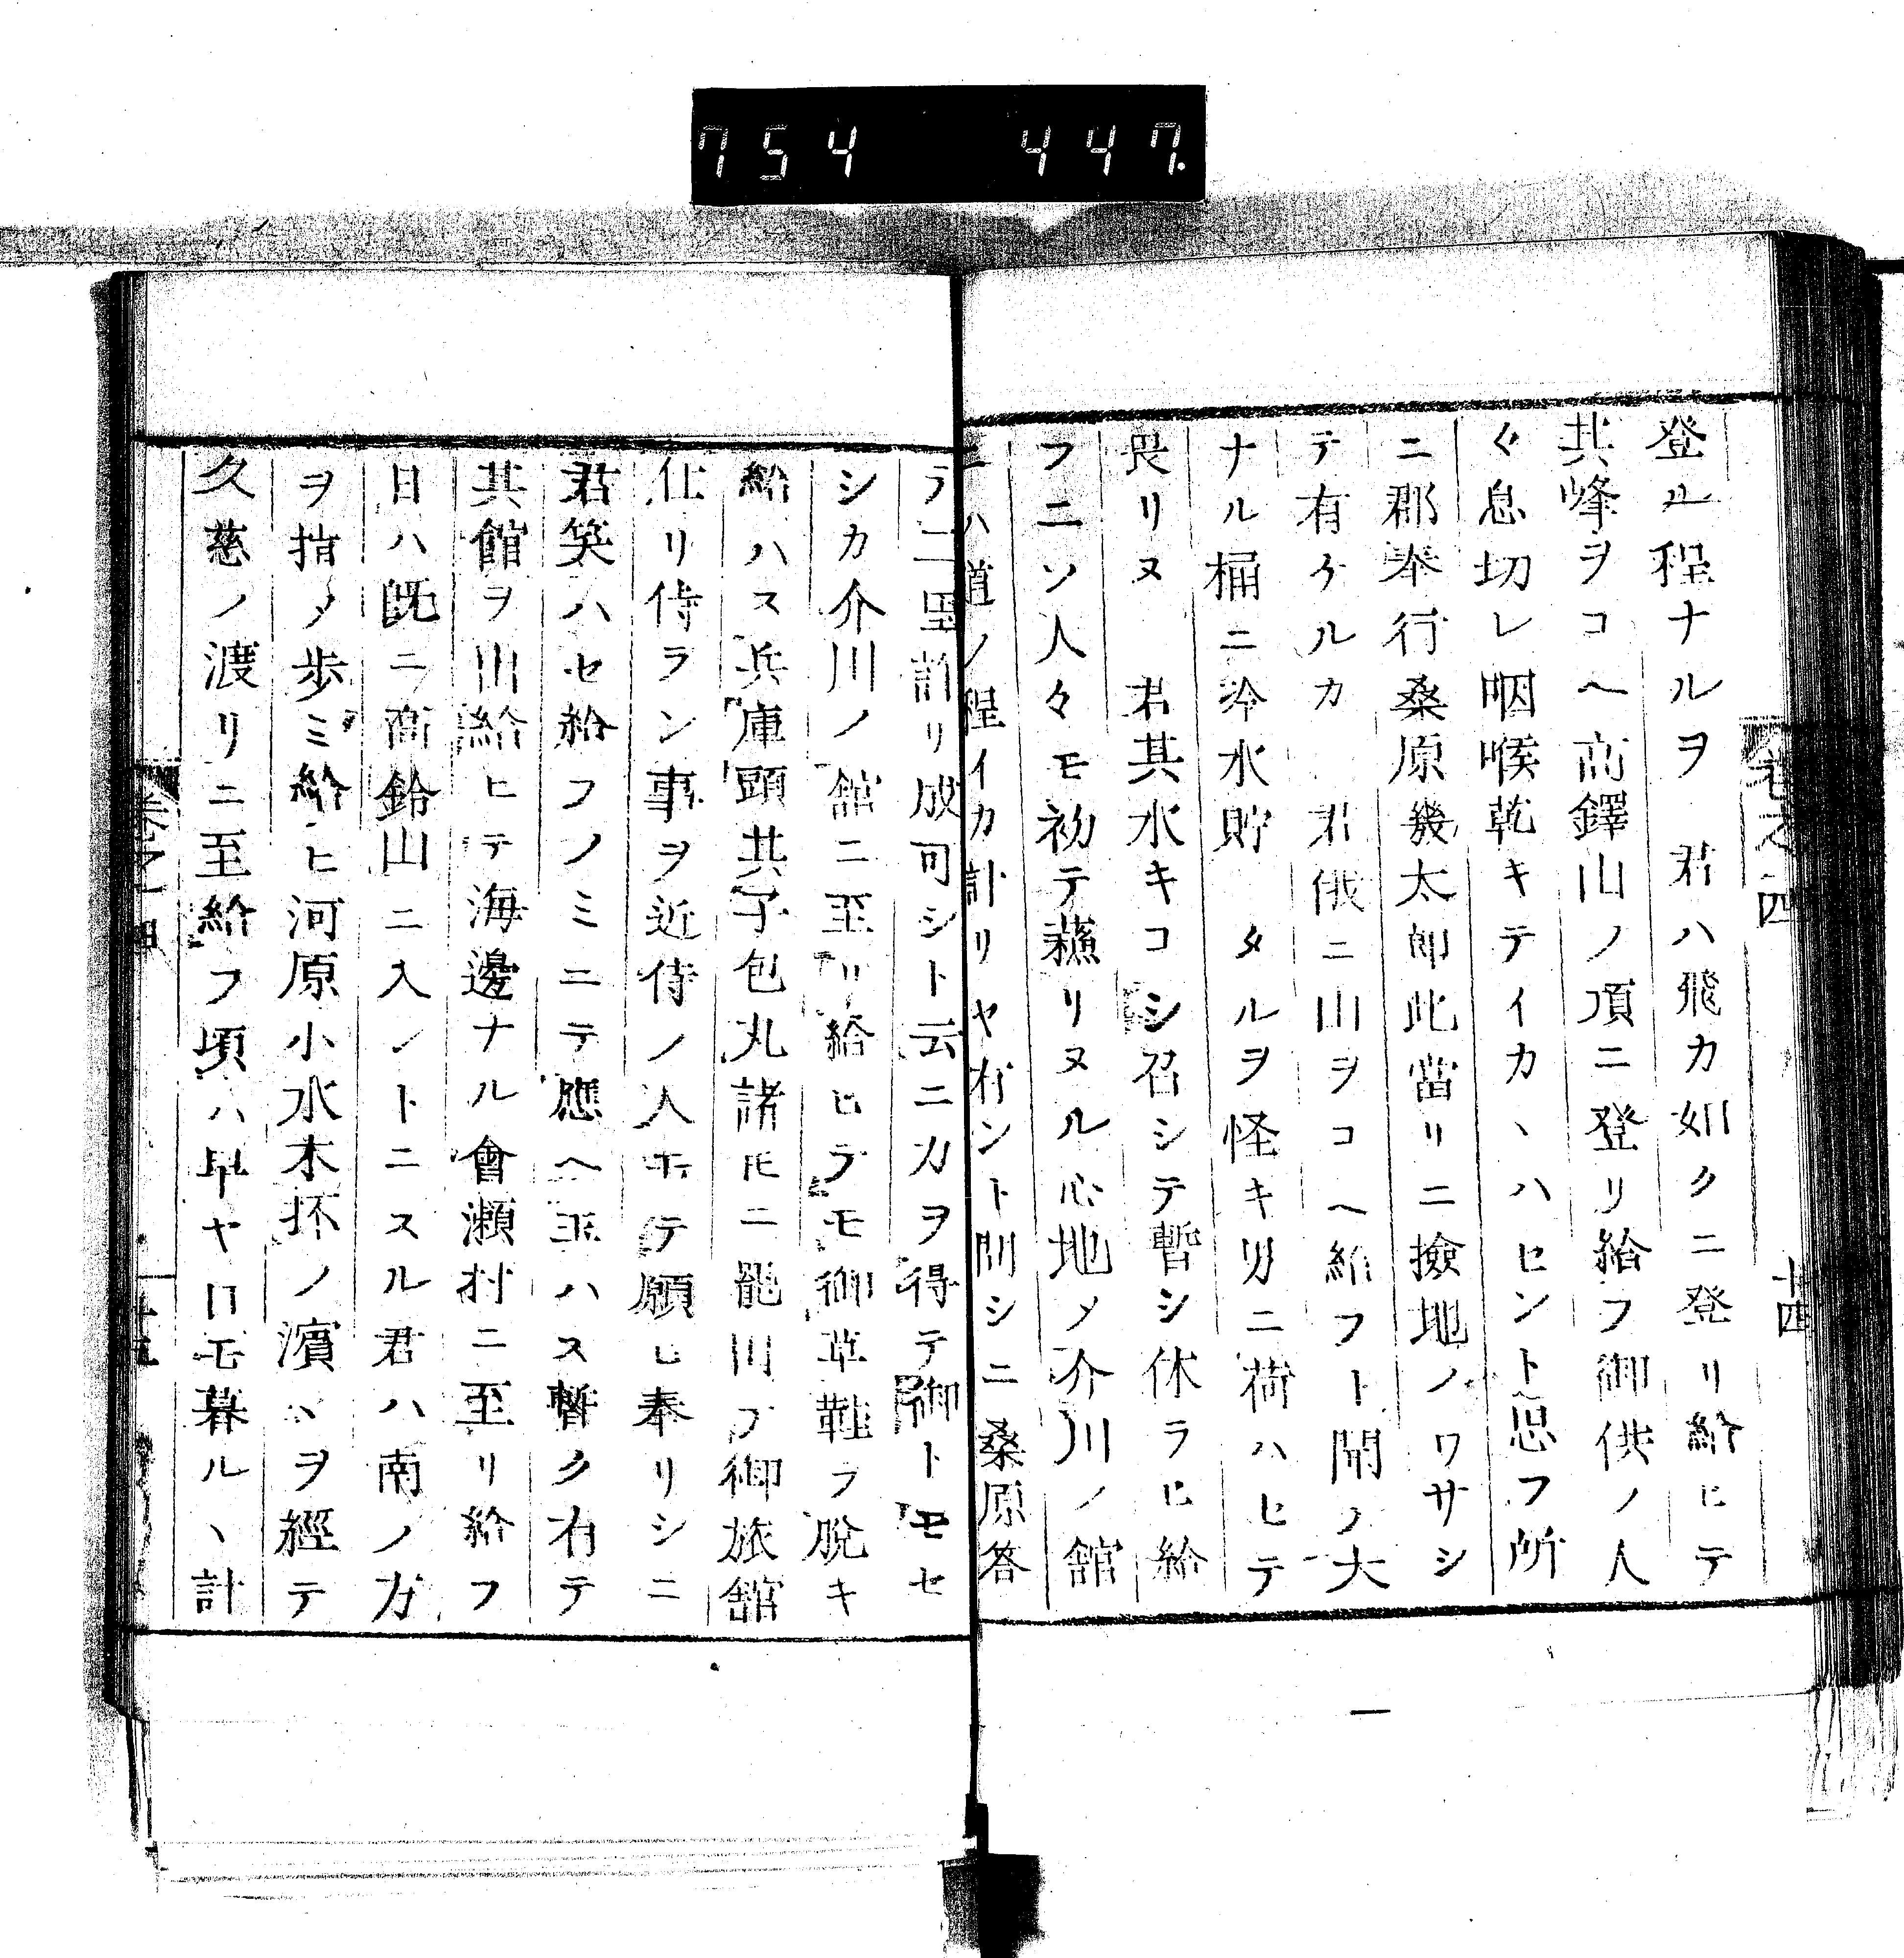 754 447.
卷之四
十四
登ル程ナルヲ 君ハ飛カ如クニ登リ給ヒテ
其峰ヲコヘ高鐸山ノ頂ニ登リ給フ御供ノ人
〻息切レ咽喉乾キテイカヽハセント思フ所
ニ郡奉行桑原幾太郎此當リニ撿地ノワサシ
テ有ケルカ 君俄ニ山ヲコヘ給フト聞ノ大
ナル桶ニ冷水貯 タルヲ怪キ男ニ荷ハヒテ
畏リヌ 君其水キコシ召シテ暫シ休ラヒ給
フニソ人々モ初テ蘇リヌル心地メ介川ノ舘
ニハ道ノ程イカ計リヤ有ント問シニ桑原答
テ二里許リ成可シト云ニカヲ得テ御トモセ
シカ介川ノ舘ニ至リ給ヒテモ御草鞋ヲ脱キ
給ハス兵庫頭其子包丸諸𪜈ニ龍川ヲ御旅舘
仕リ侍ラン事ヲ近侍ノ人モテ願ヒ奉リシニ
君笑ハセ給フノミニテ應ヘ玉ハス暫ク有テ
其館ヲ出給ヒテ海邊ナル會瀬村ニ至リ給フ
日ハ既ニ高鈴山ニ入ントニスル君ハ南ノ方
ヲ指メ歩ミ給ヒ河原小水木抔ノ濱ヽヲ經テ
久慈ノ渡リニ至給フ頃ハ早ヤ日モ暮ルヽ計
卷之四
十五